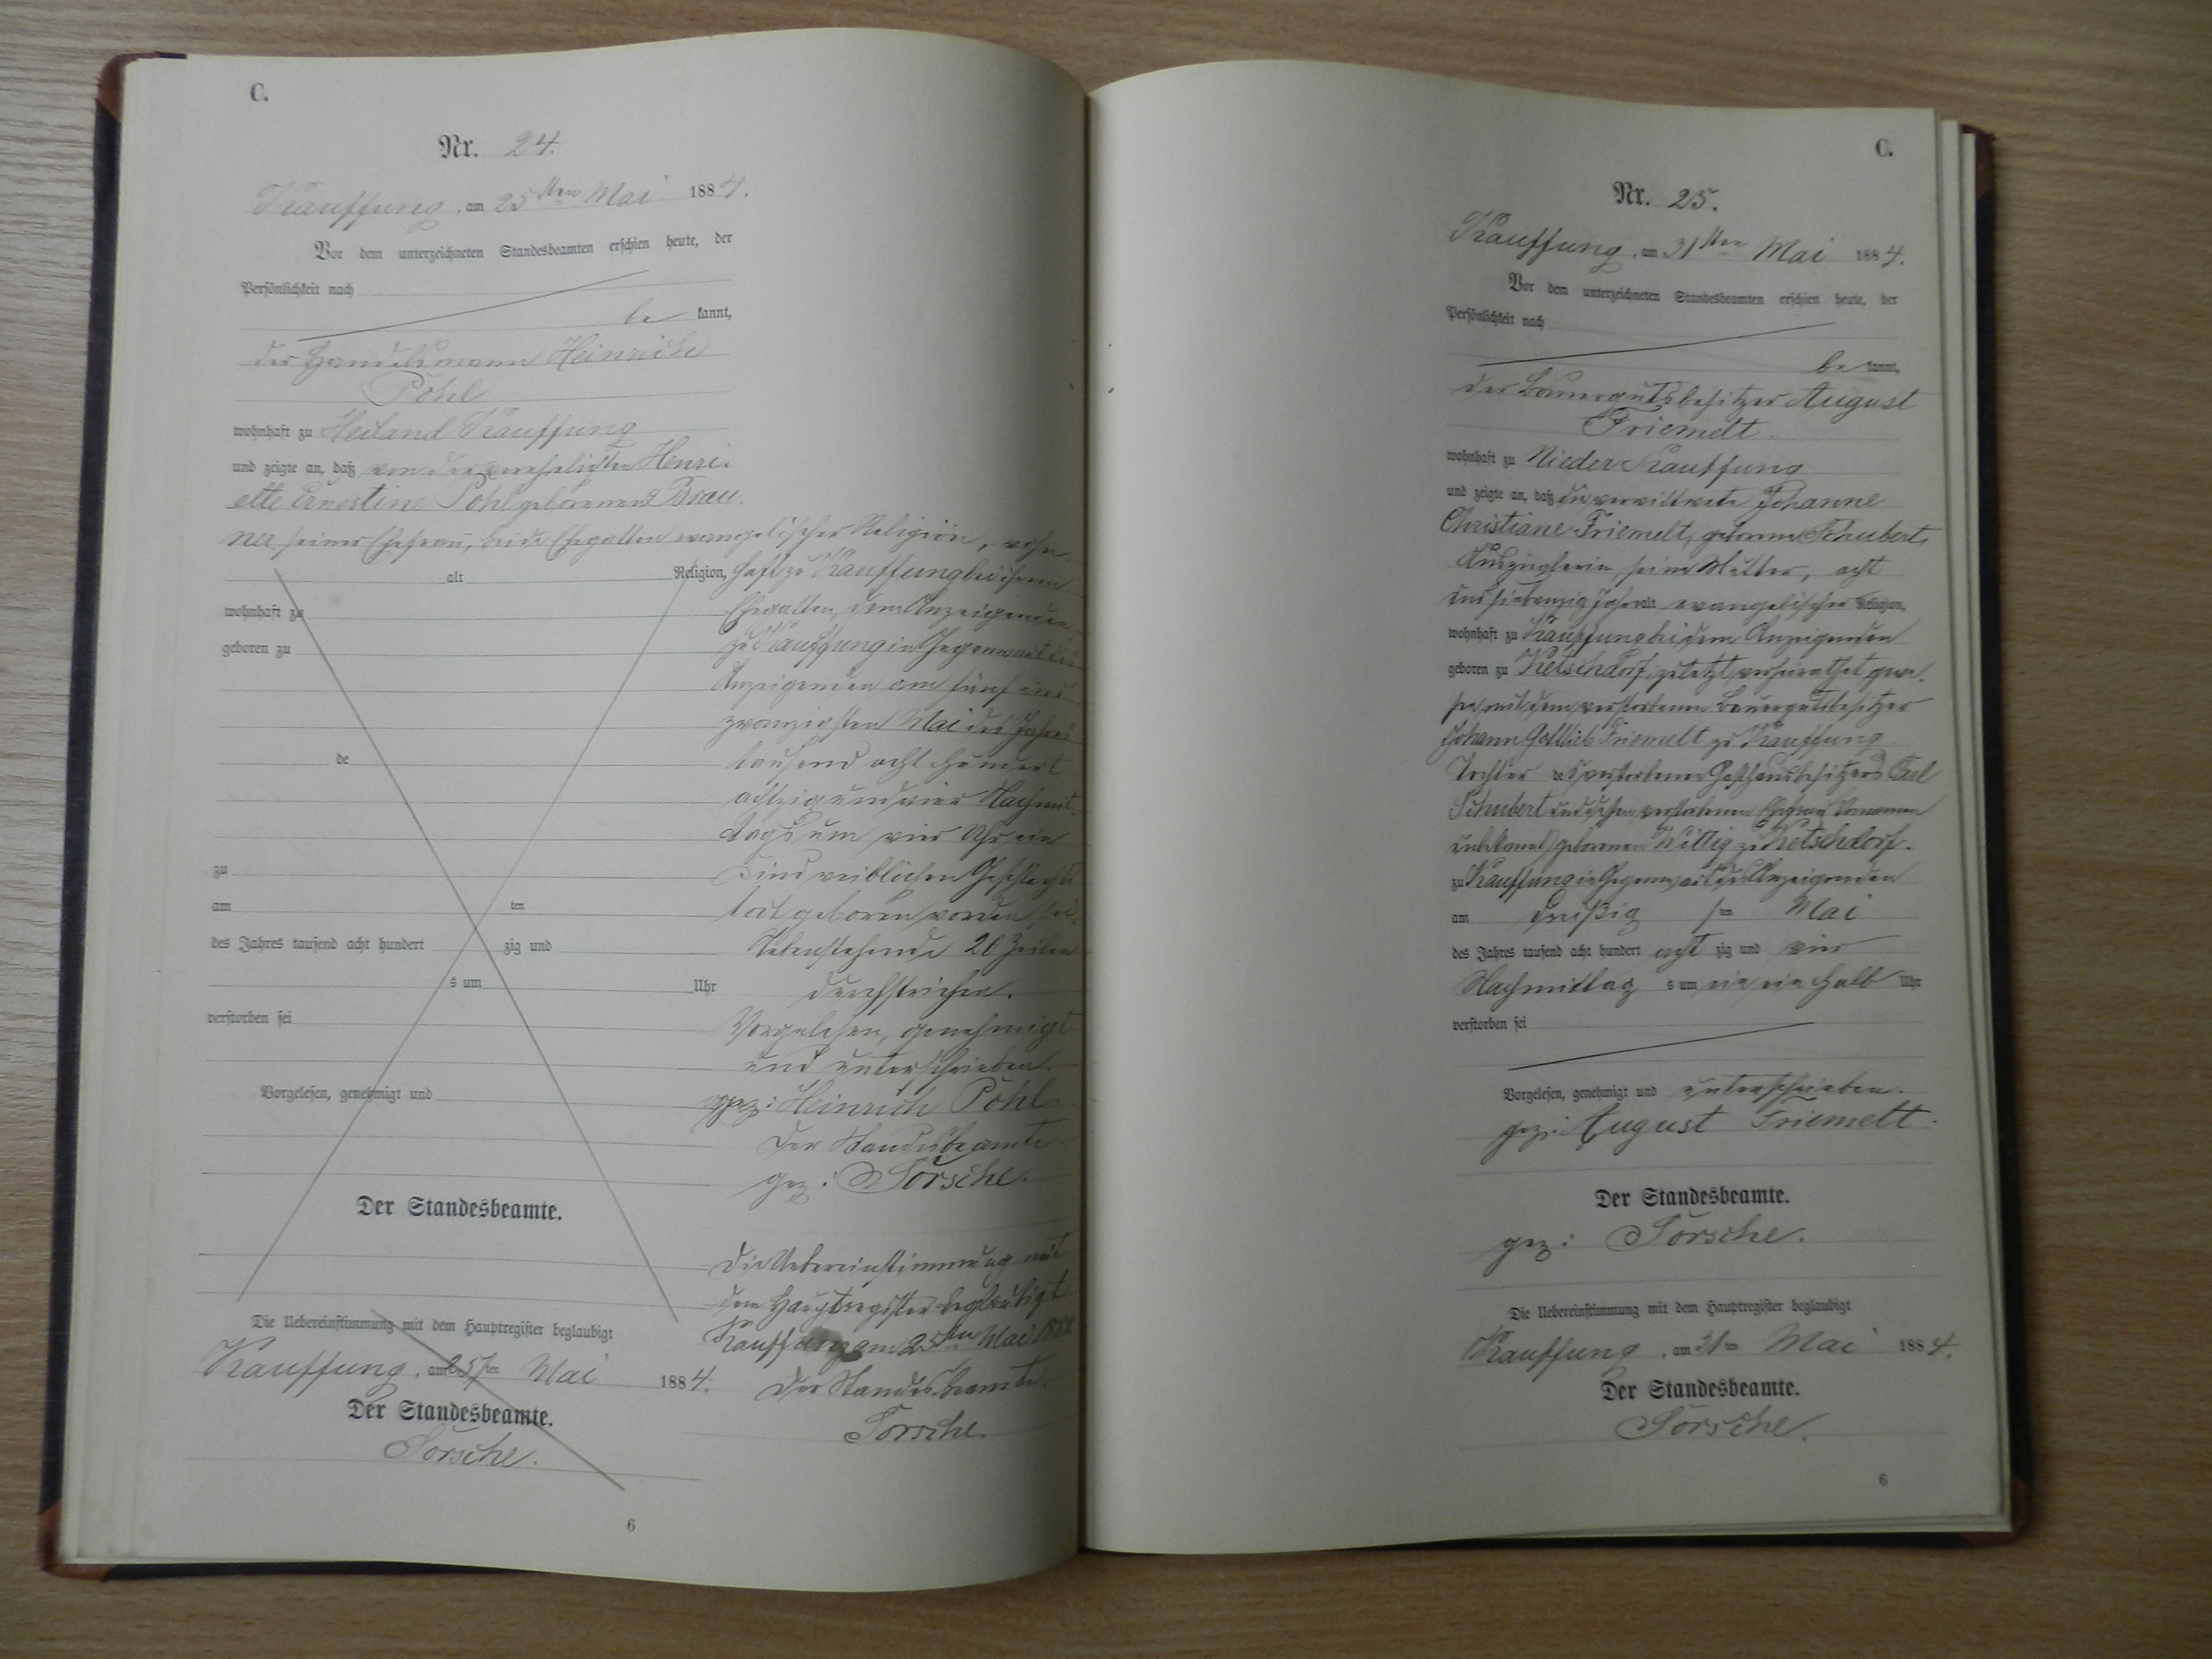 C.
Nr. 24.
Kauffung, am 25sten Mai 1884.
Vor dem unterzeichneten Standesbeamten erschien heute, der
Persönlichkeit nach
be kannt,
der Handelsmann Heinrich
Pohl
wohnhaft zu Heiland Kauffung
und zeigte an, daß von der verehelichten Henri-
ette Ernestine Pohl geborenen Brau-
ner, seiner Ehefrau, beide Ehegatten evangelischer Religion, wohn
alt Religion, haft zu Kauffung bei ihrem
wohnhaft zu Ehegatten, dem Anzeigenden,
geboren zu zu Kauffung in Gegenwart des
Anzeigenden am fünf und
zwanzigsten Mai des Jahres
de tausend acht hundert
achtzig und vier Nachmit-
tags um vier Uhr ein
zu Kind weiblichen Geschlechts
am ten todt geboren worden sei.
des Jahres tausend acht hundert zig und Nebenstehende 20 Zeilen
s um Uhr durchstrichen.
verstorben sei Vorgelesen, genehmigt
und unterschrieben.
Vorgelesen, genehmigt und gez: Heinrich Pohl.
Der Standesbeamte.
gez: Sörsche.
Der Standesbeamte.
Die Uebereinstimmung mit
dem Hauptregister beglaubigt
Kauffung am 25ten Mai 1884.
Der Standesbeamte.
Sörsche.
Die Uebereinstimmung mit dem Hauptregister beglaubigt
Kauffung, am 25ten Mai 1884.
Der Standesbeamte.
Sörsche.
6
C.
Nr. 25.
Kauffung, am 31sten Mai 1884.
Vor dem unterzeichneten Standesbeamten erschien heute, der
Persönlichkeit nach
be kannt,
der Bauergutsbesitzer August
Friemelt
wohnhaft zu Nieder Kauffung
und zeigte an, daß die verwittwete Johanne
Christiane Friemelt, geborene Schubert,
Auszüglerin, seine Mutter, acht
und siebenzig Jahre alt evangelischer Religion,
wohnhaft zu Kauffung bei dem Anzeigenden
geboren zu Ketschdorf, zuletzt verheirathet gewe-
sen mit dem verstorbenen Bauergutsbesitzer
Johann Gottlieb Friemelt zu Kauffung
Tochter des verstorbenen Gasthausbesitzers Carl
Schubert und dessen verstorbenen Ehefrau Vornamen
unbekannt geborenen Wittig zu Ketschdorf.
zu Kauffung in Gegenwart des Anzeigenden
am dreißig sten Mai
des Jahres tausend acht hundert acht zig und vier
Nachmittag s um ein halb Uhr
verstorben sei
Vorgelesen, genehmigt und unterschrieben.
gez: August Friemelt.
Der Standesbeamte.
gez: Sörsche.
Die Uebereinstimmung mit dem Hauptregister beglaubigt
Kauffung, am 31ten Mai 1884.
Der Standesbeamte.
Sörsche.
6